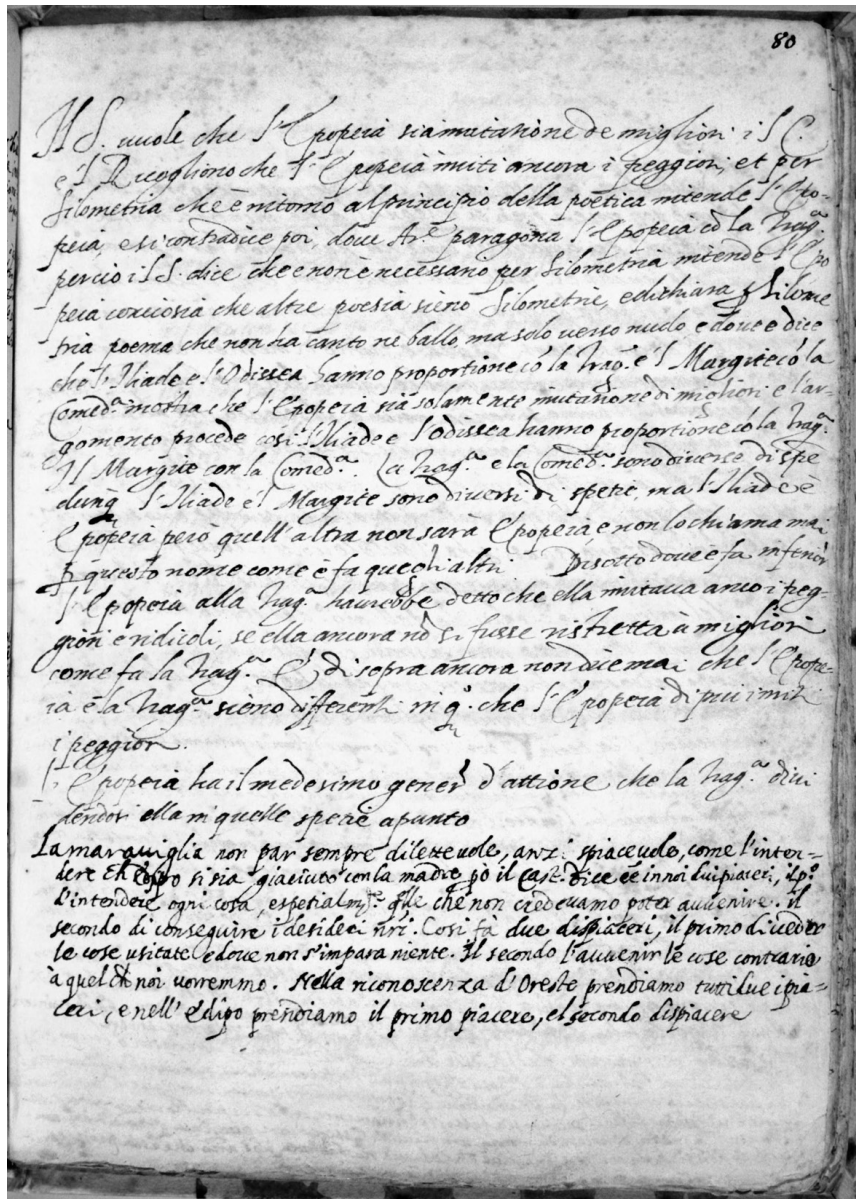 80
Il S. vuole che l'Epopeia sia imitatione de migliori: il C.
e 'l Ric. vogliono che l'Epopeia imiti ancora i peggiori, et per
filometria che è intorno al principio della poetica intende l'Epo-
peia, e si contradice poi, dove Ar.e paragona l'Epopeia cō la Trag.a
perciò il S. dice che e non è necessario per filometria intende l'Epo
peia conciosia che altre poesia sieno filometrie, e dichiara ꝑ filome
tria poema che non ha canto ne ballo, ma solo verso nudo, e dove e dice
che l'Iliade e l'Odissea hanno proportione cō la Trag.a e 'l Margite cō la
Comed.a mostra che l'Epopeia sia solamente imitatione di migliori e l'ar-
gomento procede cosi l'Iliade e l'Odissea hanno proportione cō la Trag.a
Il Margite con la Comed.a La Trag.a e la Comed.a sono diverse di spe
dunq l'Iliade e 'l Margite sono diversi di spetie, ma l'Iliade è
Epopeia però quell'altra non sarà Epopeia, e non lo chiama mai
ꝑ questo nome come e fa quegli altri. Disotto dove e fa inferior
l'Epopeia alla Trag.a haurebbe detto che ella imitava anco i peg-
giori e ridicoli, se ella ancora nō si fusse ristretta à migliori
come fa la Trag.a E di sopra ancora non dice mai che l'Epope-
ia e la Trag.a sieno differenti in q.o che l'Epopeia di piu imiti
i peggiori.
L'Epopeia ha il medesimo gener d'attione che la Trag.a divi
dendosi ella in quelle spetie apunto
La maraviglia non par sempre dilettevole, anzi spiacevole, come l'inten-
dere ch Edipo si sia giaciuto con la madre pō il Cast. dice ē in noi dui piaceri, il p.o
d'intendere ogni cosa, espetialm.te q̄lle che non credevamo poter avvenire. il
secondo di conseguire i desideri nr̄i. Cosi fà due dispiaceri, il primo di veder
le cose usitate e dove non s'impara niente. Il secondo l'avvenir le cose contrarie
à quel ch noi vorremmo. Nella riconoscenza d'Oreste prendiamo tutti due i pia-
ceri, e nell'Edipo prendiamo il primo piacere, el secondo dispiacere